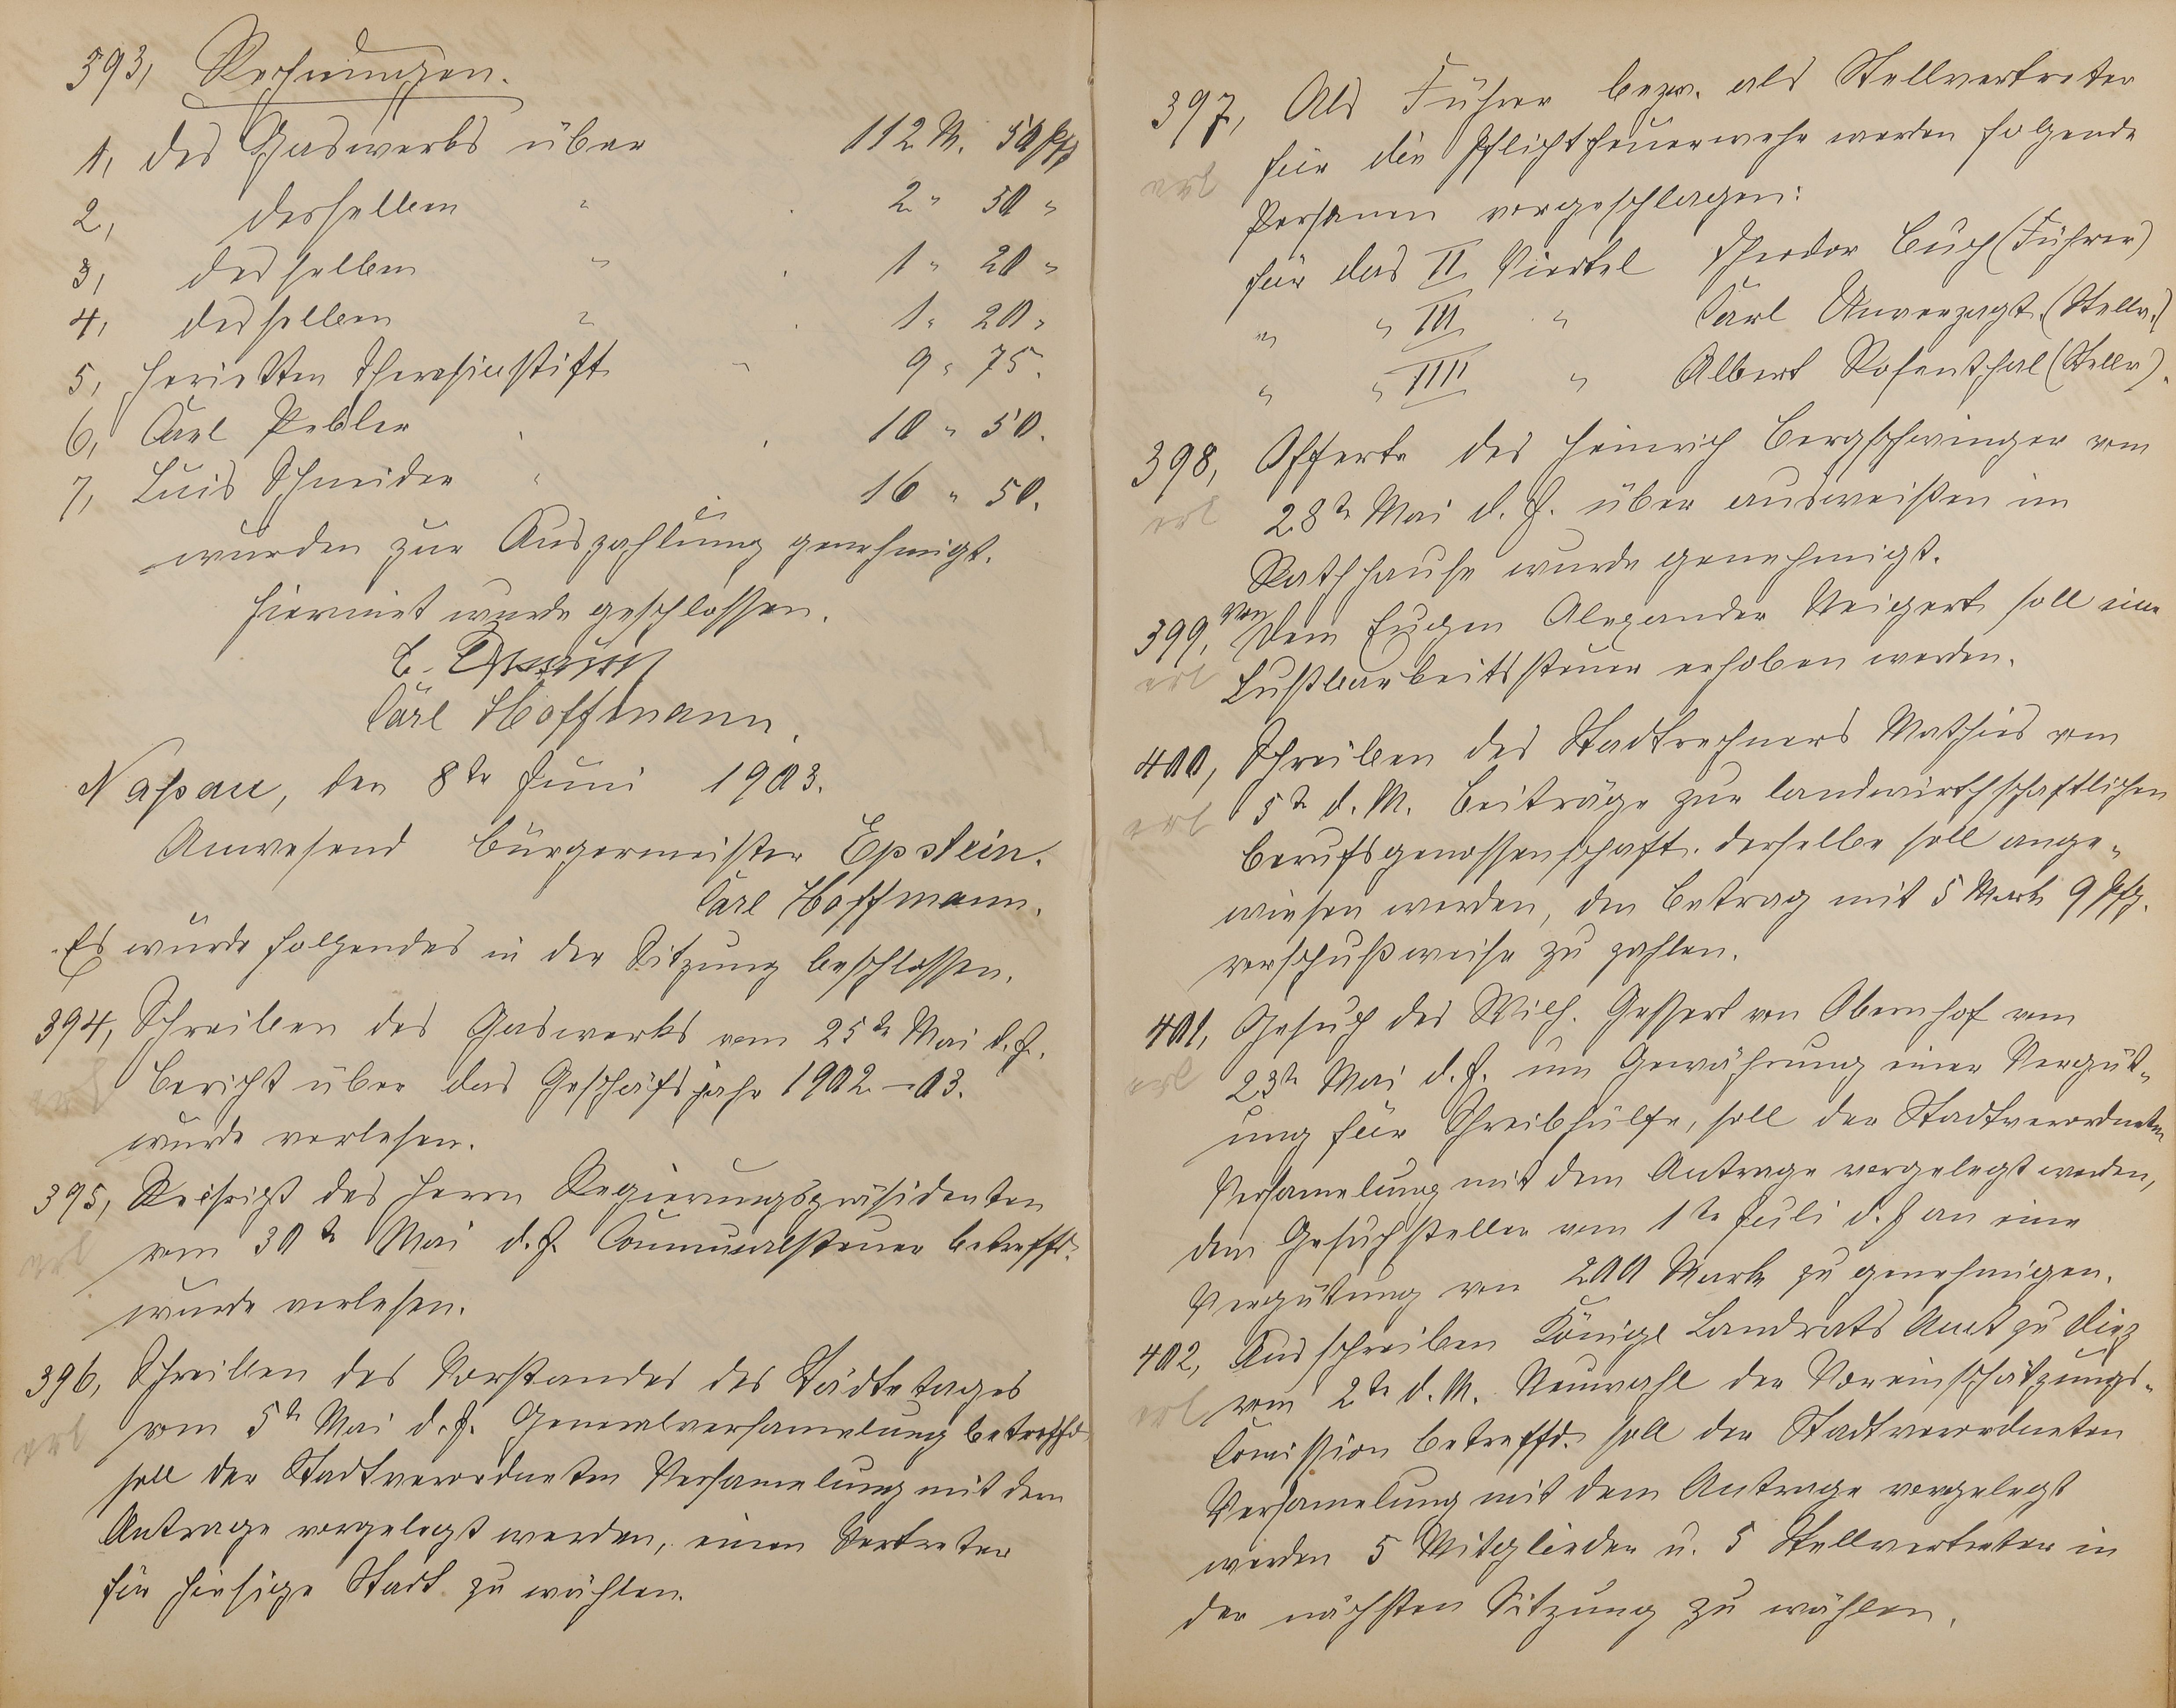 393, Rechnungen.
1, des Gaswerks über 112 M. 50 Pfg
2, desselben " 2 " 50 "
3, desselben " 1 " 20 "
4, desselben " 1 " 20 "
5, Henrietten Theresienstift " 9 " 75.
6, Carl Pebler 10 " 50.
7, Luis Schneider " 16 " 50.
wurden zur Auszahlung genehmigt.
Hiermit wurde geschlossen.
Carl Hoffmann.
Naßau, den 8te Juni 1903.
Anwesend Bürgermeister Epstein.
Carl Hoffmann.
Es wurde folgendes in der Sitzung beschlossen.
394, Schreiben des Gaswerks vom 25te Mai d. J.
Bericht über das Geschäfsjahr 1902–03.
erl
wurde verlesen.
395, des Herrn Regierungspräsidenten
vom 30te Mai d. J. Communalsteuer betreffd.
erl
wurde verlesen.
396, Schreiben des Vorstandes des Städtetages
vom 5te Mai d. J. Generalversamelung betreffd
erl
soll der Stadtverordneten Versamelung mit dem
Antrage vorgelegt werden, einen Vertreter
für hiesige Stadt zu wählen.
397, Als Führer bezw. als Stellvertreter
für die Pflichtfeuerwehr werden folgende
erl
Personen vorgeschlagen:
für das II Viertel Theodor Buch (Führer)
" " III " Carl Unverzagt (Stellv.)
" " IIII " Albert Rosenthal (Stellv).
398, Offerte des Heinrich Bergschwinger vom
28te Mai d. J. über ausweißen im
erl
Rathhause wurde genehmigt.
399, von Dem Eugen Alexander Weigert soll eine
Lustbarkeitssteuer erhoben werden.
erl
400, Schreiben des Stadtrechners Mathies vom
5te d. M. Beiträge zur landwirthschaftlichen
erl
Berufsgenossenschaft. derselbe soll ange-
wiesen werden, den Betrag mit 5 Mark 9 Pfg.
vorschußweise zu zahlen.
401, Gesuch des Wilh. Gessert von Obernhof vom
23te Mai d. J. um Gewährung einer Vergüt-
erl
ung für Schreibhülfe, soll der Stadtverordneten
Versamelung mit dem Antrage vorgelegt werden,
dem Gesuchsteller vom 1te Juli d. J an eine
Vergütung von 200 Mark zu genehmigen.
402, Ausschreiben Königl Landrats Amt zu Diez
vom 2te d. M. Neuwahl der Voreinschätzungs-
erl
Comission betreffd. soll der Stadtverordneten
Versamelung mit dem Antrage vorgelegt
werden 5 Mitglieder u. 5 Stellvertreter in
der nächsten Sitzung zu wählen.